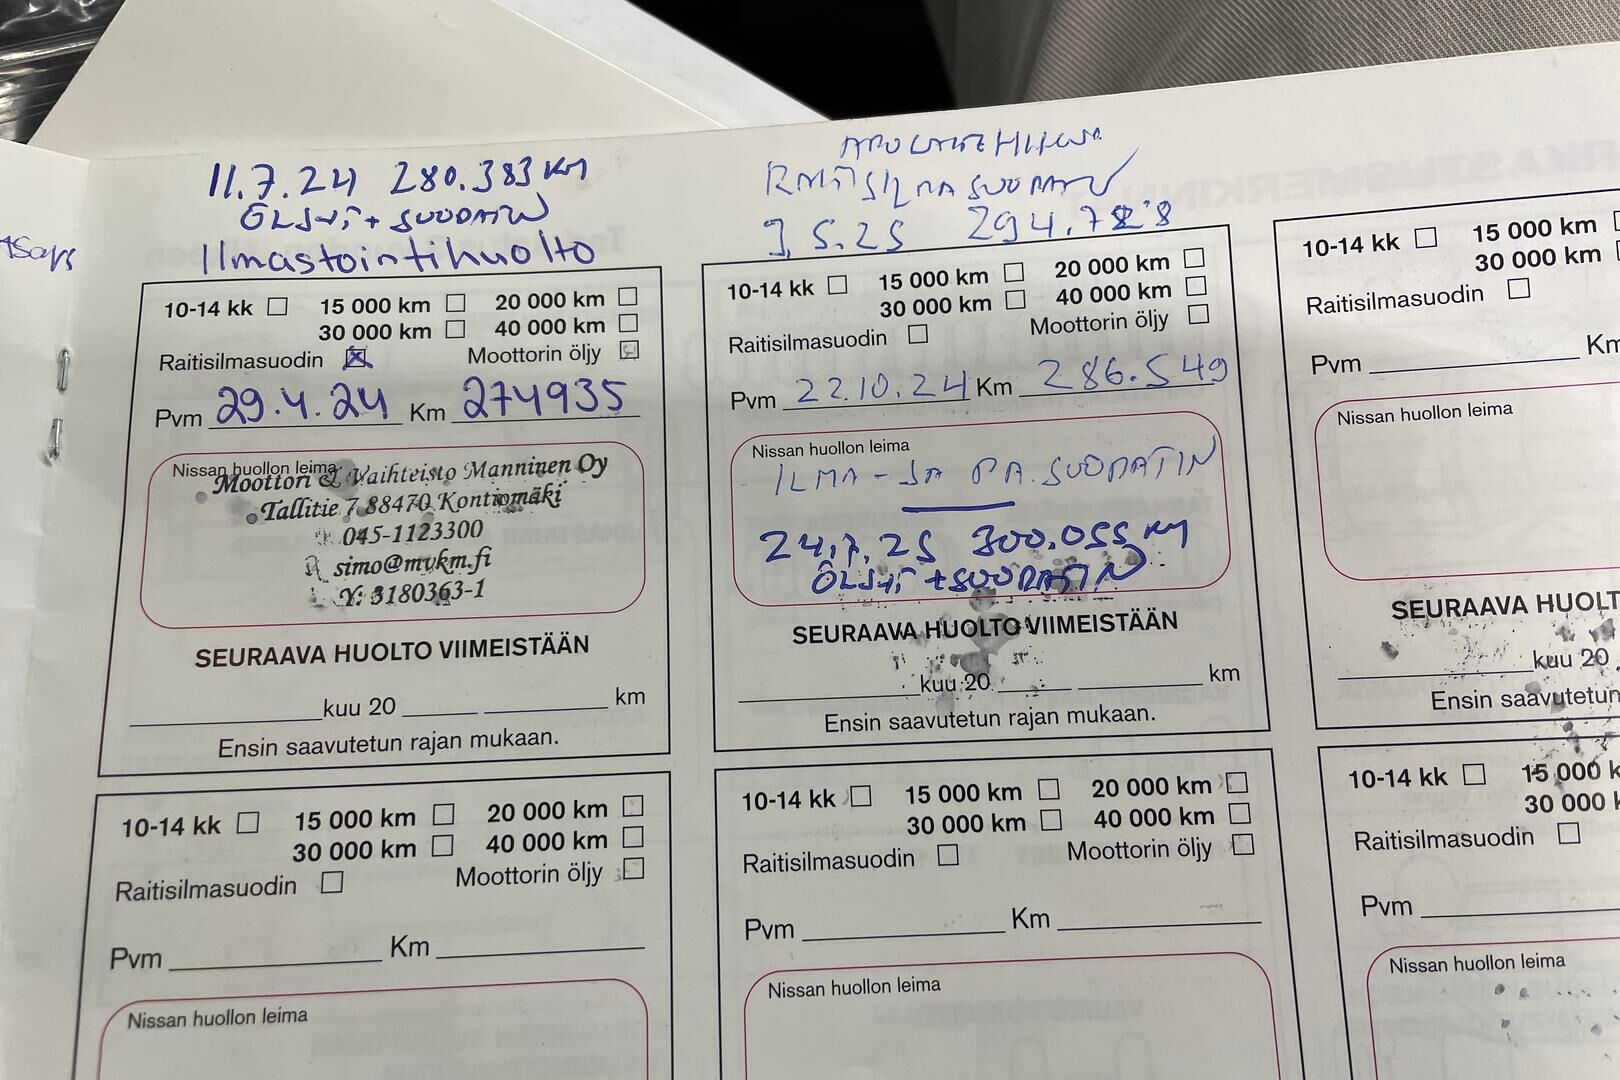 11.7.24 280.383 KM
ÖLJYT + SUODATIN
Ilmastointihuolto
10-14 kk 15 000 km 20 000 km
30 000 km 40 000 km
Raitisilmasuodin Moottorin öljy
Pvm 29.4.24 Km 274935
Nissan huollon leima
Moottori & Vaihteisto Manninen Oy
Tallitie 7 88470 Kontiomäki
045-1123300
simo@mvkm.fi
Y: 3180363-1
SEURAAVA HUOLTO VIIMEISTÄÄN
kuu 20 km
Ensin saavutetun rajan mukaan.
RAITISILMASUODATIN
9.5.25
10-14 kk 15 000 km 20 000 km
30 000 km 40 000 km
Raitisilmasuodin Moottorin öljy
Pvm 22.10.24 Km 286.549
Nissan huollon leima
ILMA - JA PA.SUODATIN
24.7.25 300.055 KM
ÖLJYT + SUODATIN
SEURAAVA HUOLTO VIIMEISTÄÄN
kuu 20 km
Ensin saavutetun rajan mukaan.
10-14 kk 15 000 km
30 000 km
Raitisilmasuodin
Pvm Km
Nissan huollon leima
SEURAAVA HUOLT
kuu 20
Ensin saavutetun
10-14 kk 15 000 km 20 000 km
30 000 km 40 000 km
Raitisilmasuodin Moottorin öljy
Pvm Km
Nissan huollon leima
10-14 kk 15 000 km 20 000 km
30 000 km 40 000 km
Raitisilmasuodin Moottorin öljy
Pvm Km
Nissan huollon leima
10-14 kk 15 000 k
30 000 k
Raitisilmasuodin
Pvm
Nissan huollon leima